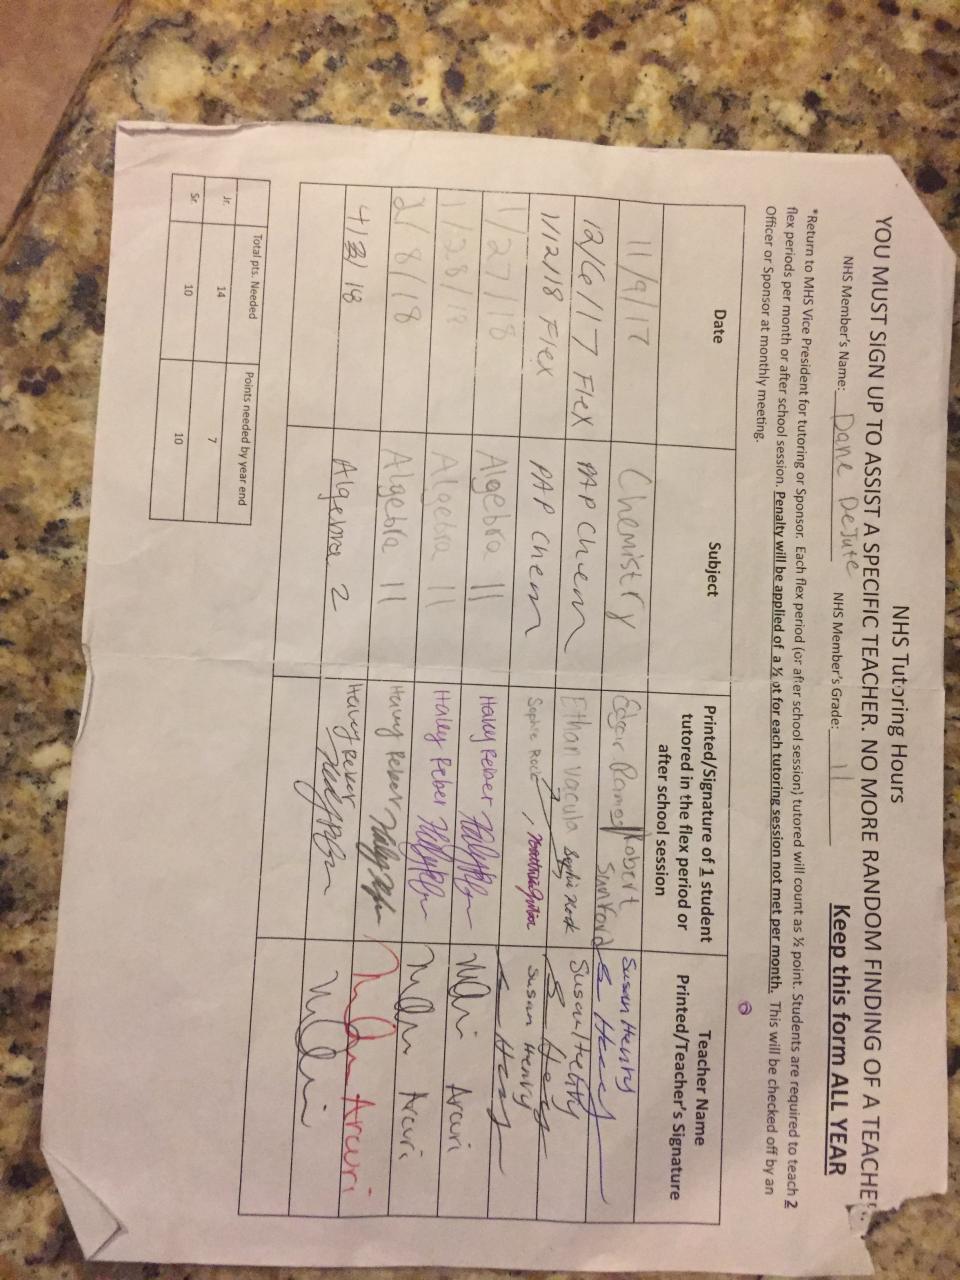 NHS Tutoring Hours
YOU MUST SIGN UP TO ASSIST A SPECIFIC TEACHER. NO MORE RANDOM FINDING OF A TEACHER.
NHS Member's Name: Dane DeJute NHS Member's Grade: 11 Keep this form ALL YEAR
*Return to MHS Vice President for tutoring or Sponsor. Each flex period (or after school session) tutored will count as ½ point. Students are required to teach 2
flex periods per month or after school session. Penalty will be applied of a ½ pt for each tutoring session not met per month. This will be checked off by an
Officer or Sponsor at monthly meeting.
Date Subject Printed/Signature of 1 student tutored in the flex period or after school session Teacher Name Printed/Teacher's Signature
11/9/17 Chemistry Edgir Ramos/Robert Sanford Susan Henry
12/6/17 Flex PAP Chem Ethan Vacula Sophie Rock Susan Henry
1/12/18 Flex PAP Chem Sophie Rock, Susan Henry
1/27/18 Algebra 11 Haley Reber Arcuri
1/28/18 Algebra 11 Haley Reber Arcuri
2/8/18 Algebra 11 Haley Reber Arcuri
4/3/18 Algebra 2 Haley Reber
Total pts. Needed Points needed by year end
Jr. 14 7
Sr. 10 10